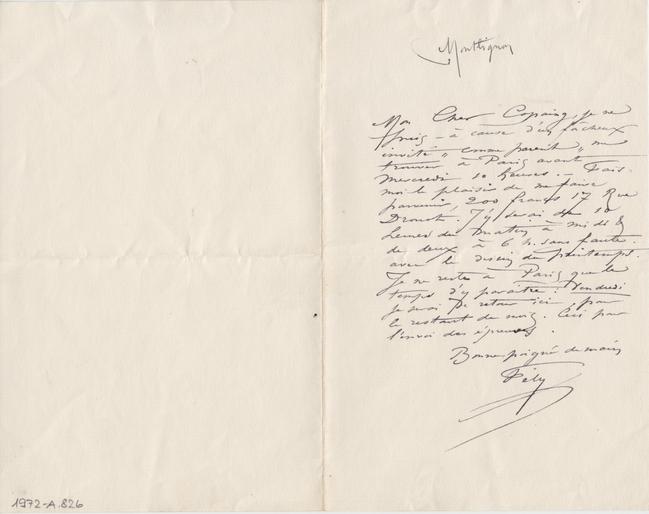 Montlignon
Mon Cher Copaing, je ne
puis – à cause d'un facheux
invité „ comme parent „ me
trouver à Paris avant
Mercredi 10 heures. – Fais-
moi le plaisir de me faire
parvenir, 200 francs 17 Rue
Drouot. J'y serai de 10
heures du matin à midi &
de deux à 6 h. sans faute.
avec le dessin du printemps.
Je ne reste à Paris que le
temps d'y paraître! Vendredi
je serai de retour ici, pour
le restant du mois. Ceci pour
l'envoi des épreuves.
Bonne poignée de main
Fély
1972-A.826